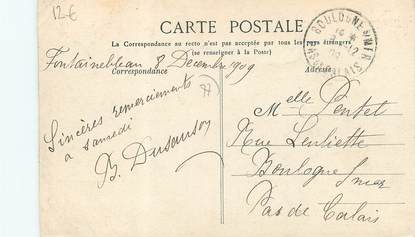 12€
CARTE POSTALE
La Correspondance au recto n'est pas acceptée par tous les pays étrangers
(se renseigner à la Poste)
Fontainebleau 8 Décembre 1909
Correspondance
Adresse
BOULOGNE S/MER
PAS DE CALAIS
77
Sincères remerciements
à samedi
B.
Melle
Rue
Boulogne s/mer
Pas de Calais